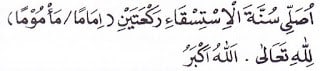 اُصَلِّى سُنَّةَ الْاِسْتِسْقَاءِ رَكْعَتَيْنِ (اِمَامًا/مَأْمُوْمًا)
لِلّٰهِ تَعَالٰى . اَللهُ اَكْبَرُ